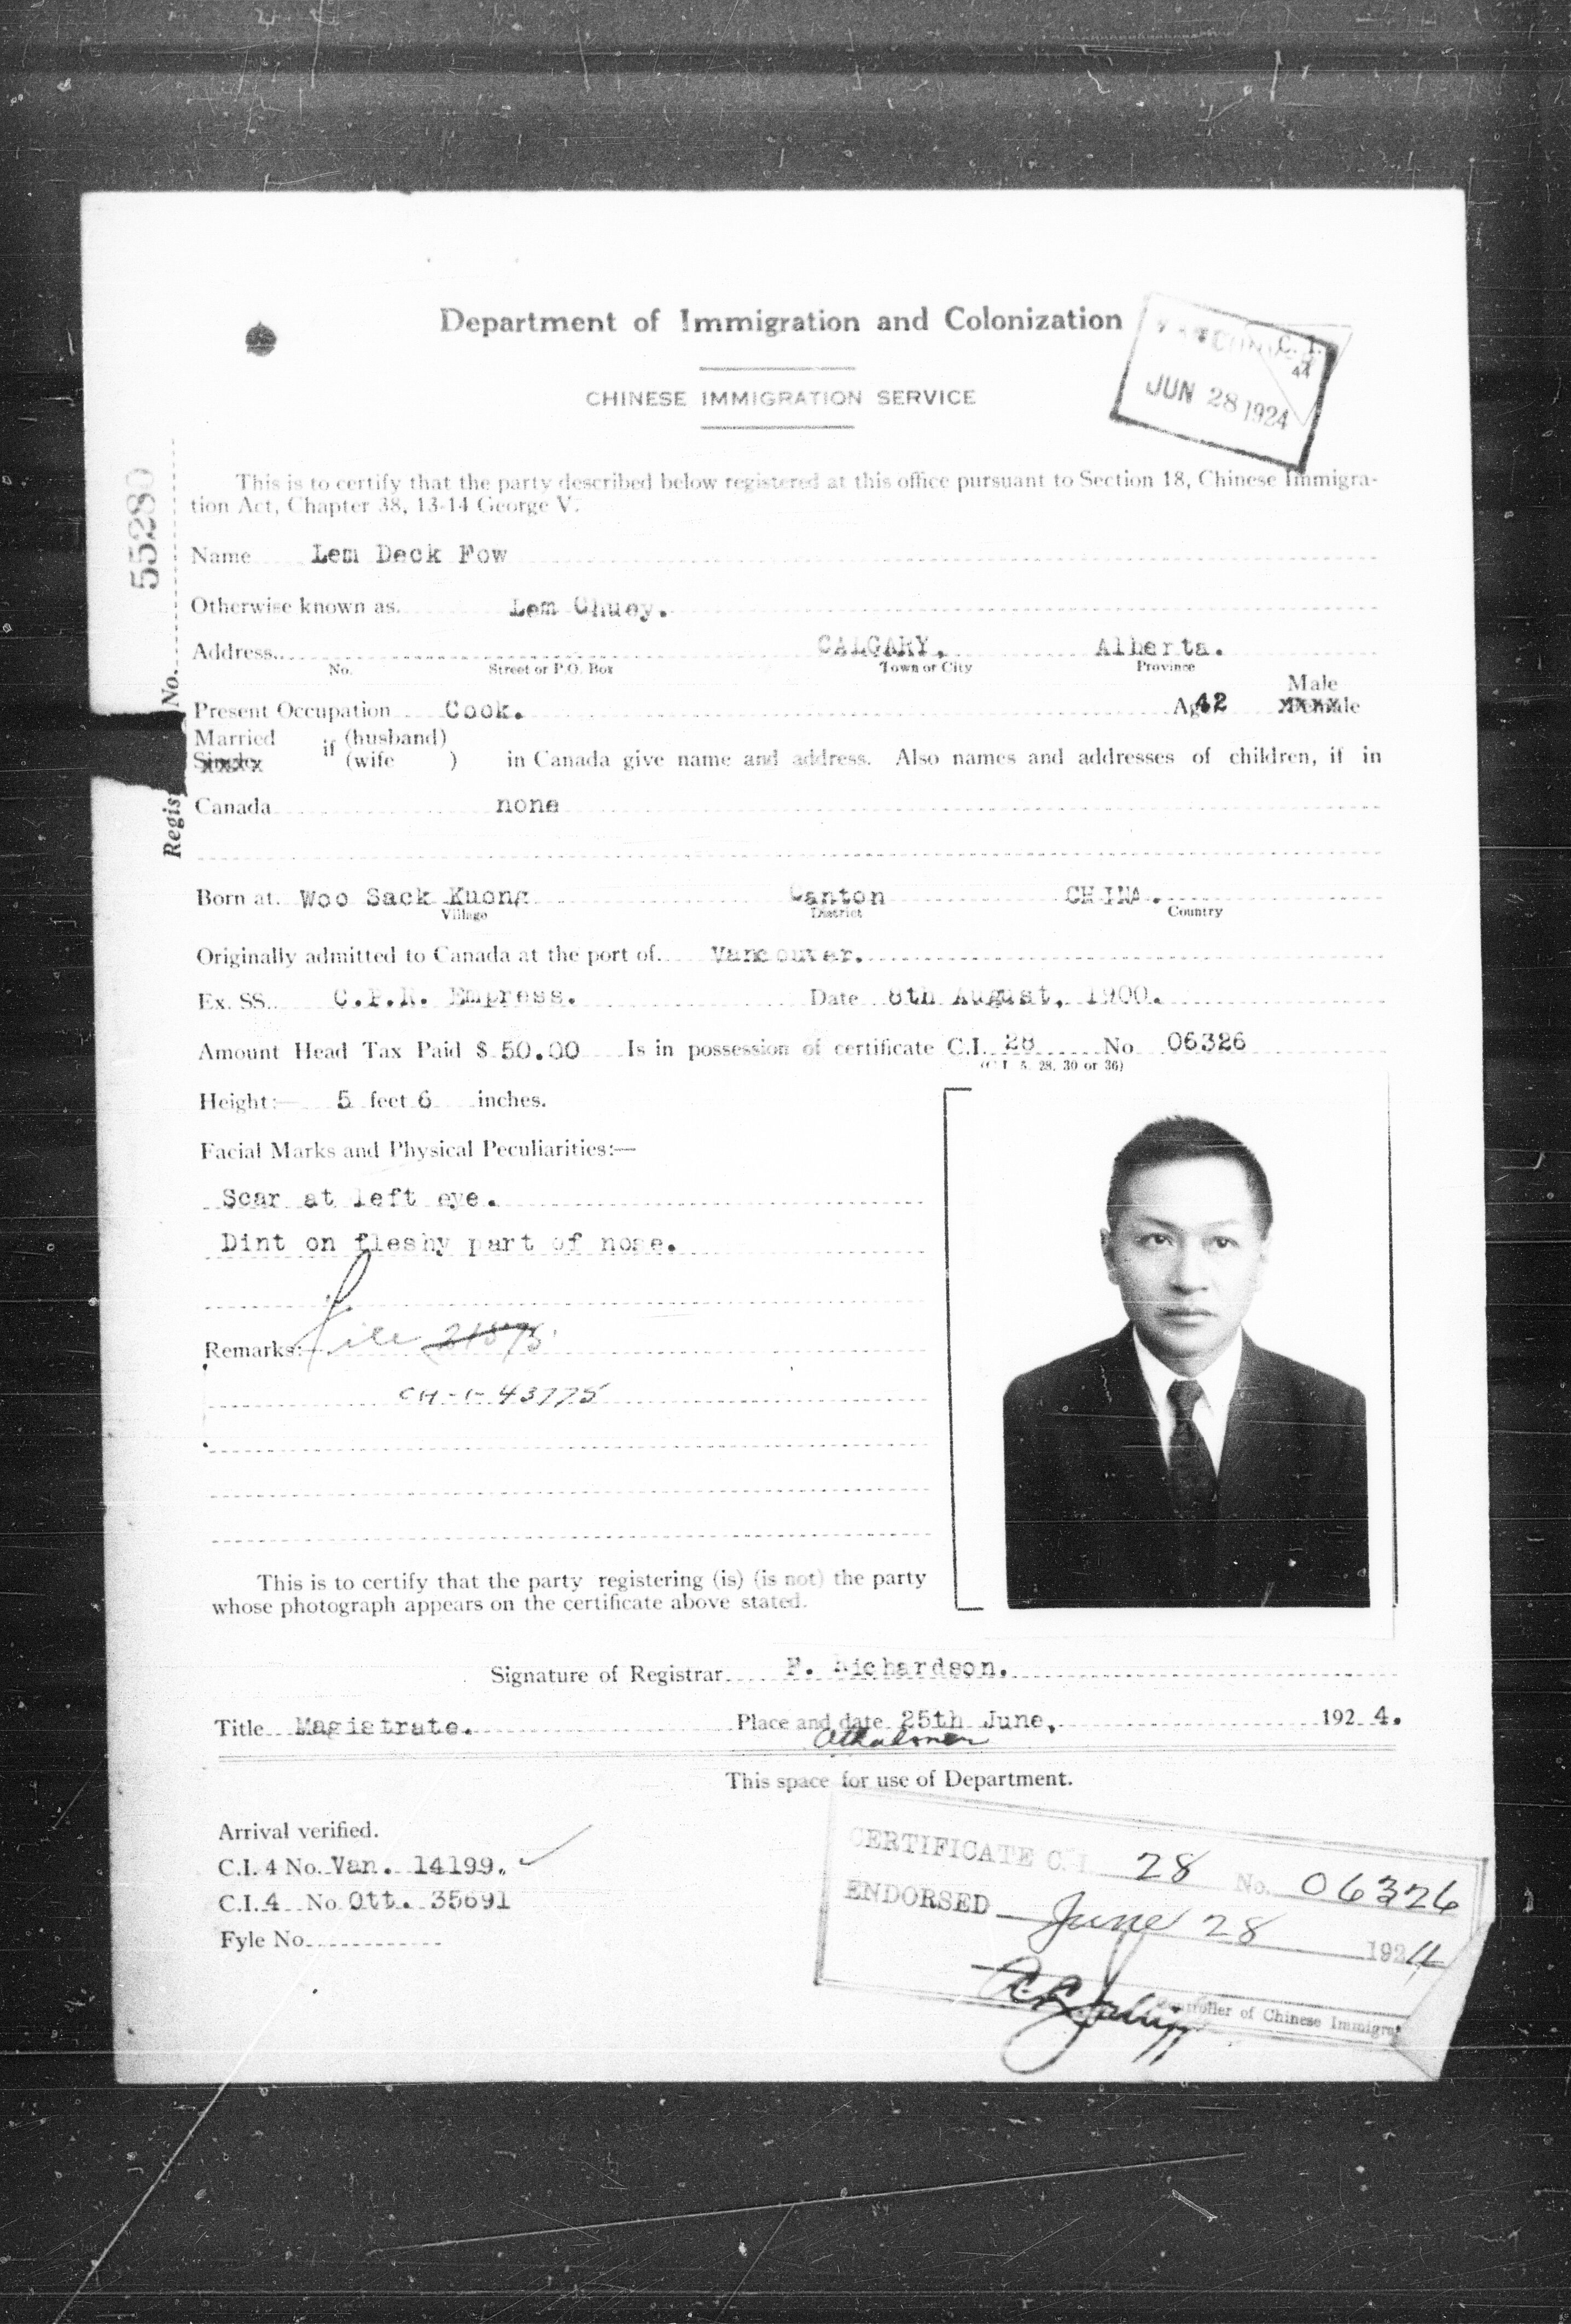 Department of Immigration and Colonization
CHINESE IMMIGRATION SERVICE
C. I.
44
JUN 28 1924
This is to certify that the party described below registered at this office pursuant to Section 18, Chinese Immigra-
tion Act, Chapter 38, 13-14 George V.
55280
No.
Regis
Name Lem Deck Fow
Otherwise known as. Lem Chuey.
Address. CALGARY, Alberta.
No. Street or P.O. Box Town or City Province
Male
Present Occupation Cook. Age 42 Female
Married if (husband)
Single (wife ) in Canada give name and address. Also names and addresses of children, if in
Canada none
Born at. Woo Sack Kuong Canton CHINA.
Village District Country
Originally admitted to Canada at the port of. Vancouver.
Ex. SS. C.P.R. Empress. Date 8th August, 1900.
Amount Head Tax Paid $ 50.00 Is in possession of certificate C.I. 28 No 06326
(C.I. 5, 28, 30 or 36)
Height:— 5 feet 6 inches.
Facial Marks and Physical Peculiarities:—
Scar at left eye.
Dint on fleshy part of nose.
Remarks:— file
CH-1-43775
This is to certify that the party registering (is) (is not) the party
whose photograph appears on the certificate above stated.
Signature of Registrar F. Richardson.
Title Magistrate. Place and date 25th June, 192 4.
Athalmer
This space for use of Department.
Arrival verified.
C.I. 4 No. Van. 14199.
C.I. 4 No Ott. 35691
Fyle No.
CERTIFICATE C.I. 28 No. 06326
ENDORSED June 28 1924
Controller of Chinese Immigrat